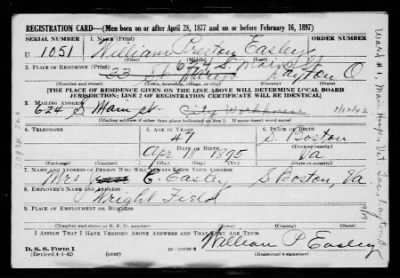 REGISTRATION CARD—(Men born on or after April 28, 1877 and on or before February 16, 1897)
SERIAL NUMBER 1. NAME (Print) ORDER NUMBER
U 1051 William Preston Easley
624 S. Main St
2. PLACE OF RESIDENCE (Print)
33 Dayton O
[THE PLACE OF RESIDENCE GIVEN ON THE LINE ABOVE WILL DETERMINE LOCAL BOARD
JURISDICTION; LINE 2 OF REGISTRATION CERTIFICATE WILL BE IDENTICAL]
3. MAILING ADDRESS
624 S Main St. City Workhouse
4. TELEPHONE 5. AGE IN YEARS 6. PLACE OF BIRTH
47 S. Boston
DATE OF BIRTH
Apr 18 1895 Va
7. NAME AND ADDRESS OF PERSON WHO WILL ALWAYS KNOW YOUR ADDRESS
Mrs E Easley S. Boston, Va
8. EMPLOYER'S NAME AND ADDRESS
Wright Field
9. PLACE OF EMPLOYMENT OR BUSINESS
I AFFIRM THAT I HAVE VERIFIED ABOVE ANSWERS AND THAT THEY ARE TRUE.
D. S. S. Form 1
(Revised 4-1-42)
William P Easley